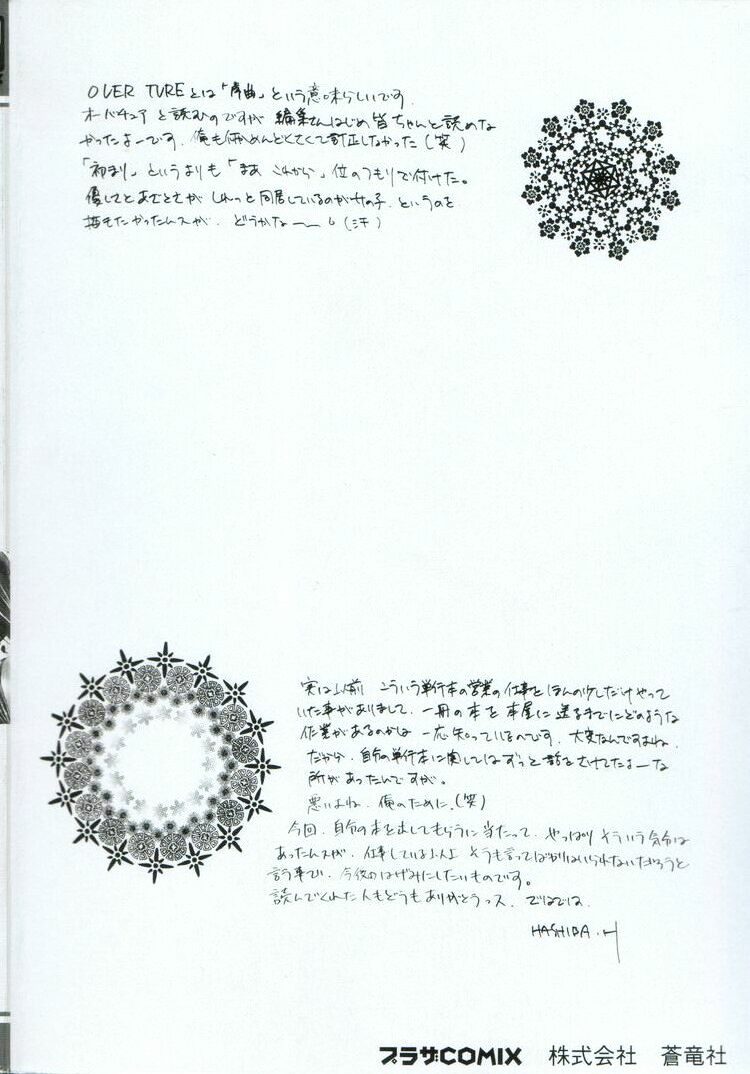 OVER TUREとは「序曲」という意味らしいです.
オーバチュアと読むのですが 編集さんはじめ皆ちゃんと読めな
かったよーです. 俺も何かめんどくさくて訂正しなかった(笑)
「初まり」というよりも「まあ これから」位のつもりで付けた。
優しさと がしれっと同居しているのが女の子. というのを
描きたかったんスが. どうかなー (汗)
実は以前 こういう単行本の営業の仕事をほんの少しだけやって
いた事がありまして. 一冊の本を本屋に送るまでにどのような
作業があるのかは 一応知っているのです. 大変なんですよね.
だから. 自分の単行本に関してはずっと話をさけてたよーな
所があったんですが。
悪いよね. 俺のために.(笑)
今回. 自分の本を出してもらうに当たって. やっぱり そういう気分は
あったんスが. 仕事している以上 そうも言ってばかりはいられないだろうと
言う事で. 今後のはげみにしたいものです。
読んでくれた人もどうもありがとうっス. ではでは.
HASHIBA.H
プラザCOMIX 株式会社 蒼竜社